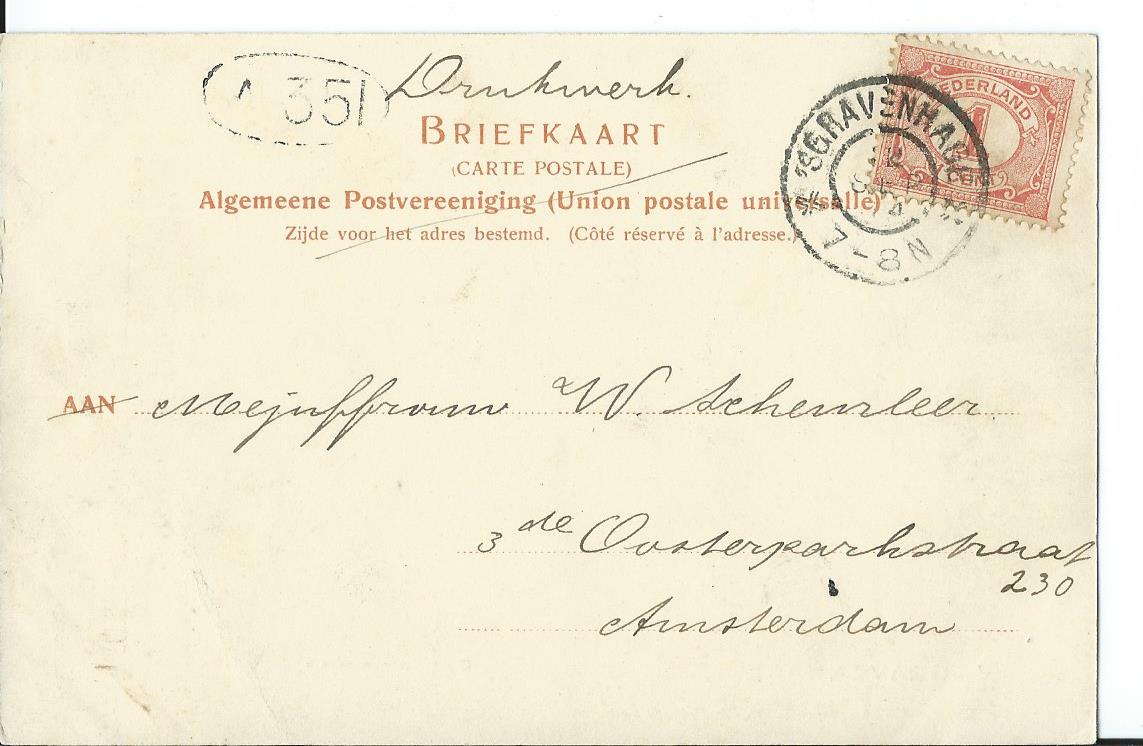 351
Drukwerk.
BRIEFKAART
(CARTE POSTALE)
Algemeene Postvereeniging (Union postale universalle)
Zijde voor het adres bestemd. (Côté réservé à l'adresse.)
NEDERLAND
1
CENT
'SGRAVENHAGE
7-8N
AAN Mejuffrouw W. Scheurleer
3de Oosterparkstraat
230
Amsterdam